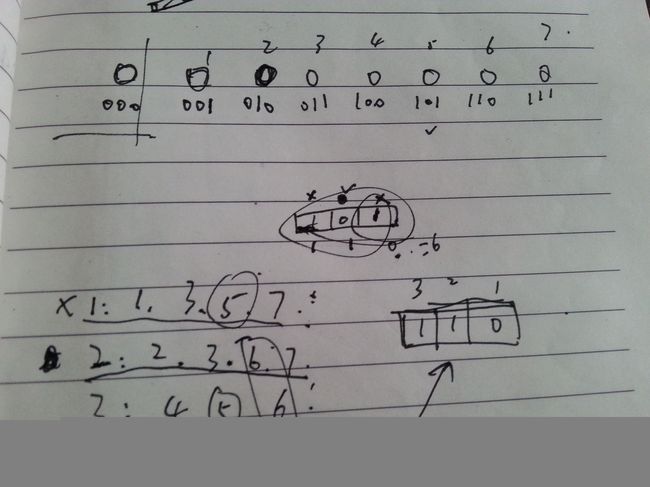 1 2 3 4 5 6 7.
0 0 0 0 0 0 0 0
000 001 010 011 100 101 110 111
✓
x ✓ x
1 0 1
1 1 0 . . = 6
3 2 1
1 1 0
x 1: 1. 3. 5. 7.
2: 2. 3. 6. 7.